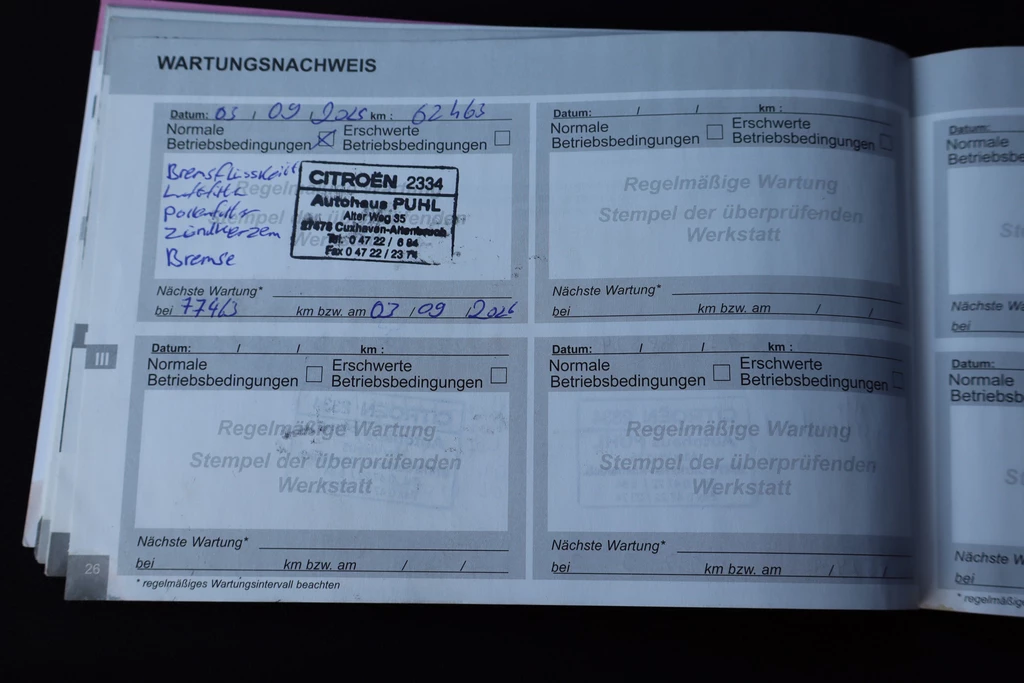 WARTUNGSNACHWEIS
Datum: 03 / 09 / 2025 km : 62463
Normale
Betriebsbedingungen
Erschwerte
Betriebsbedingungen
Bremsflüssigkeit
Luftfilter
Pollenfilter
Zündkerzem
Bremse
CITROËN 2334
Autohaus PUHL
Alter Weg 35
27478 Cuxhaven-Altenbruch
Tel. 0 47 22 / 6 84
Fax 0 47 22 / 23 71
Nächste Wartung*
bei 77463 km bzw. am 03 / 09 / 2026
Datum: / / km :
Normale
Betriebsbedingungen
Erschwerte
Betriebsbedingungen
Regelmäßige Wartung
Stempel der überprüfenden
Werkstatt
Nächste Wartung*
bei km bzw. am / /
III
Datum: / / km :
Normale
Betriebsbedingungen
Erschwerte
Betriebsbedingungen
Regelmäßige Wartung
Stempel der überprüfenden
Werkstatt
Nächste Wartung*
bei km bzw. am / /
Datum: / / km :
Normale
Betriebsbedingungen
Erschwerte
Betriebsbedingungen
Regelmäßige Wartung
Stempel der überprüfenden
Werkstatt
Nächste Wartung*
bei km bzw. am / /
26
* regelmäßiges Wartungsintervall beachten
Datum:
Normale
Nächste Wartung
bei
Datum:
Normale
Nächste Wartung
bei